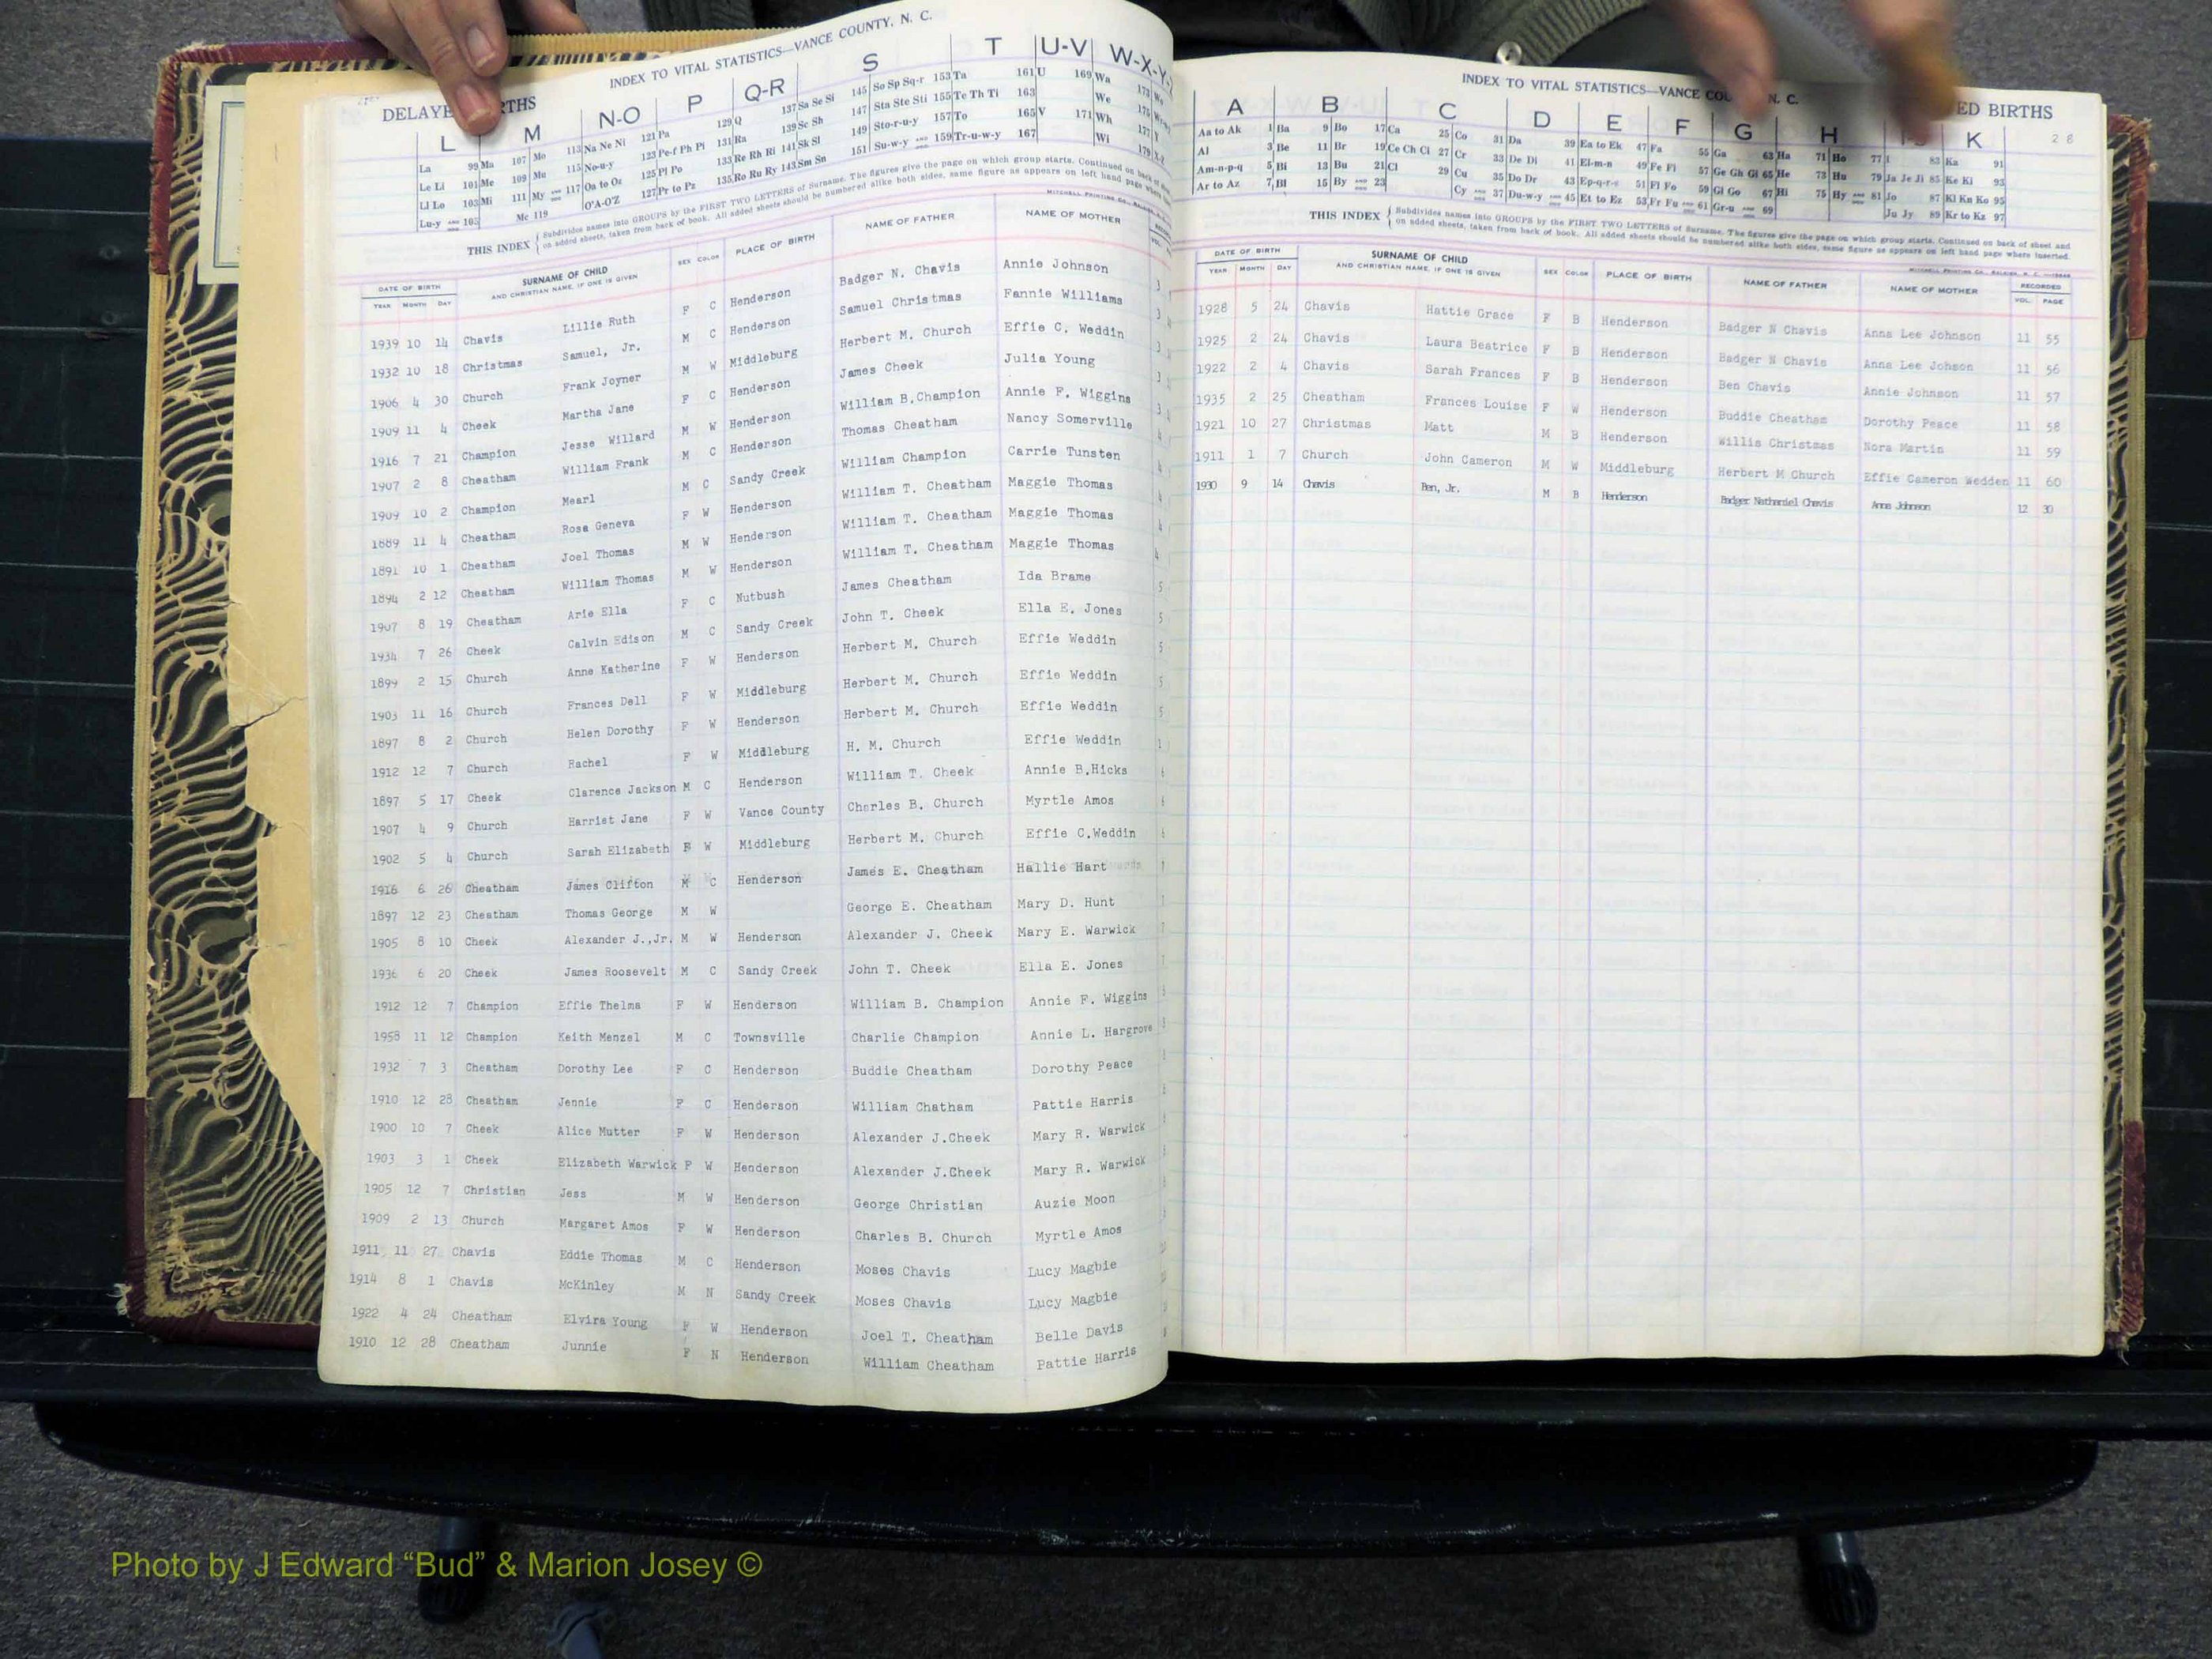 INDEX TO VITAL STATISTICS—VANCE COUNTY, N. C.
DELAYE RTHS
L M N-O P Q-R S T U-V W-X-Y-
La 99 Ma 107 Mo 113 Na Ne Ni 121 Pa 129 Q 137 Sa Se Si 145 So Sp Sq-r 153 Ta 161 U 169 Wa 173
Le Li 101 Me 109 Mu 115 No-u-y 123 Pe-f Ph Pi 131 Ra 139 Sc Sh 147 Sta Ste Sti 155 Te Th Ti 163 We 175
Ll Lo 103 Mi 111 My and 117 Oa to Oz 125 Pl Po 133 Re Rh Ri 141 Sk Sl 149 Sto-r-u-y 157 To 165 V 171 Wh 177
Lu-y and 105 Mc 119 O'A-O'Z 127 Pr to Pz 135 Ro Ru Ry 143 Sm Sn 151 Su-w-y and 159 Tr-u-w-y 167 Wi 179
THIS INDEX Subdivides names into GROUPS by the FIRST TWO LETTERS of Surname. The figures give the page on which group starts. Continued on back of
on added sheets, taken from back of book. All added sheets should be numbered alike both sides, same figure as appears on left hand page where
DATE OF BIRTH SURNAME OF CHILD SEX COLOR PLACE OF BIRTH NAME OF FATHER NAME OF MOTHER
YEAR MONTH DAY AND CHRISTIAN NAME, IF ONE IS GIVEN
1939 10 14 Chavis Lillie Ruth F C Henderson Badger N. Chavis Annie Johnson 3
1932 10 18 Christmas Samuel, Jr. M C Henderson Samuel Christmas Fannie Williams 3
1906 4 30 Church Frank Joyner M W Middleburg Herbert M. Church Effie C. Weddin 3
1909 11 4 Cheek Martha Jane F C Henderson James Cheek Julia Young 3
1916 7 21 Champion Jesse Willard M W Henderson William B.Champion Annie F. Wiggins 3
1907 2 8 Cheatham William Frank M C Henderson Thomas Cheatham Nancy Somerville 4
1909 10 2 Champion Mearl M C Sandy Creek William Champion Carrie Tunsten 4
1889 11 4 Cheatham Rosa Geneva F W Henderson William T. Cheatham Maggie Thomas 4
1891 10 1 Cheatham Joel Thomas M W Henderson William T. Cheatham Maggie Thomas 4
1894 2 12 Cheatham William Thomas M W Henderson William T. Cheatham Maggie Thomas 4
1907 8 19 Cheatham Arie Ella F C Nutbush James Cheatham Ida Brame 5
1934 7 26 Cheek Calvin Edison M C Sandy Creek John T. Cheek Ella E. Jones 5
1899 2 15 Church Anne Katherine F W Henderson Herbert M. Church Effie Weddin 5
1903 11 16 Church Frances Dell F W Middleburg Herbert M. Church Effie Weddin 5
1897 8 2 Church Helen Dorothy F W Henderson Herbert M. Church Effie Weddin 5
1912 12 7 Church Rachel F W Middleburg H. M. Church Effie Weddin
1897 5 17 Cheek Clarence Jackson M C Henderson William T. Cheek Annie B.Hicks
1907 4 9 Church Harriet Jane F W Vance County Charles B. Church Myrtle Amos
1902 5 4 Church Sarah Elizabeth F W Middleburg Herbert M. Church Effie C.Weddin
1916 6 26 Cheatham James Clifton M C Henderson James E. Cheatham Hallie Hart
1897 12 23 Cheatham Thomas George M W George E. Cheatham Mary D. Hunt
1905 8 10 Cheek Alexander J.,Jr. M W Henderson Alexander J. Cheek Mary E. Warwick
1936 6 20 Cheek James Roosevelt M C Sandy Creek John T. Cheek Ella E. Jones
1912 12 7 Champion Effie Thelma F W Henderson William B. Champion Annie F. Wiggins
1958 11 12 Champion Keith Menzel M C Townsville Charlie Champion Annie L. Hargrove
1932 7 3 Cheatham Dorothy Lee F C Henderson Buddie Cheatham Dorothy Peace
1910 12 28 Cheatham Jennie F C Henderson William Chatham Pattie Harris
1900 10 7 Cheek Alice Mutter F W Henderson Alexander J.Cheek Mary R. Warwick
1903 3 1 Cheek Elizabeth Warwick F W Henderson Alexander J.Cheek Mary R. Warwick
1905 12 7 Christian Jess M W Henderson George Christian Auzie Moon
1909 2 13 Church Margaret Amos F W Henderson Charles B. Church Myrtle Amos
1911 11 27 Chavis Eddie Thomas M C Henderson Moses Chavis Lucy Magbie
1914 8 1 Chavis McKinley M N Sandy Creek Moses Chavis Lucy Magbie
1922 4 24 Cheatham Elvira Young F W Henderson Joel T. Cheatham Belle Davis
1910 12 28 Cheatham Junnie F N Henderson William Cheatham Pattie Harris
INDEX TO VITAL STATISTICS—VANCE COU N. C.
ED BIRTHS
28
A B C D E F G H K
Aa to Ak 1 Ba 9 Bo 17 Ca 25 Co 31 Da 39 Ea to Ek 47 Fa 55 Ga 63 Ha 71 Ho 77 I 83 Ka 91
Al 3 Be 11 Br 19 Ce Ch Ci 27 Cr 33 De Di 41 El-m-n 49 Fe Fi 57 Ge Gh Gi 65 He 73 Hu 79 Ja Je Ji 85 Ke Ki 93
Am-n-p-q 5 Bi 13 Bu 21 Cl 29 Cu 35 Do Dr 43 Ep-q-r-s 51 Fl Fo 59 Gl Go 67 Hi 75 Hy and 81 Jo 87 Kl Kn Ko 95
Ar to Az 7 Bl 15 By and 23 Cy and 37 Du-w-y and 45 Et to Ez 53 Fr Fu and 61 Gr-u and 69 Ju Jy 89 Kr to Kz 97
THIS INDEX Subdivides names into GROUPS by the FIRST TWO LETTERS of Surname. The figures give the page on which group starts. Continued on back of sheet and
on added sheets, taken from back of book. All added sheets should be numbered alike both sides, same figure as appears on left hand page where inserted.
DATE OF BIRTH SURNAME OF CHILD SEX COLOR PLACE OF BIRTH NAME OF FATHER NAME OF MOTHER RECORDED
YEAR MONTH DAY AND CHRISTIAN NAME, IF ONE IS GIVEN VOL. PAGE
1928 5 24 Chavis Hattie Grace F B Henderson Badger N Chavis Anna Lee Johnson 11 55
1925 2 24 Chavis Laura Beatrice F B Henderson Badger N Chavis Anna Lee Johson 11 56
1922 2 4 Chavis Sarah Frances F B Henderson Ben Chavis Annie Johnson 11 57
1935 2 25 Cheatham Frances Louise F W Henderson Buddie Cheatham Dorothy Peace 11 58
1921 10 27 Christmas Matt M B Henderson Willis Christmas Nora Martin 11 59
1911 1 7 Church John Cameron M W Middleburg Herbert M Church Effie Cameron Wedden 11 60
1930 9 14 Chavis Ben, Jr. M B Henderson Badger Nathaniel Chavis Anna Johnson 12 30
Photo by J Edward “Bud” & Marion Josey ©